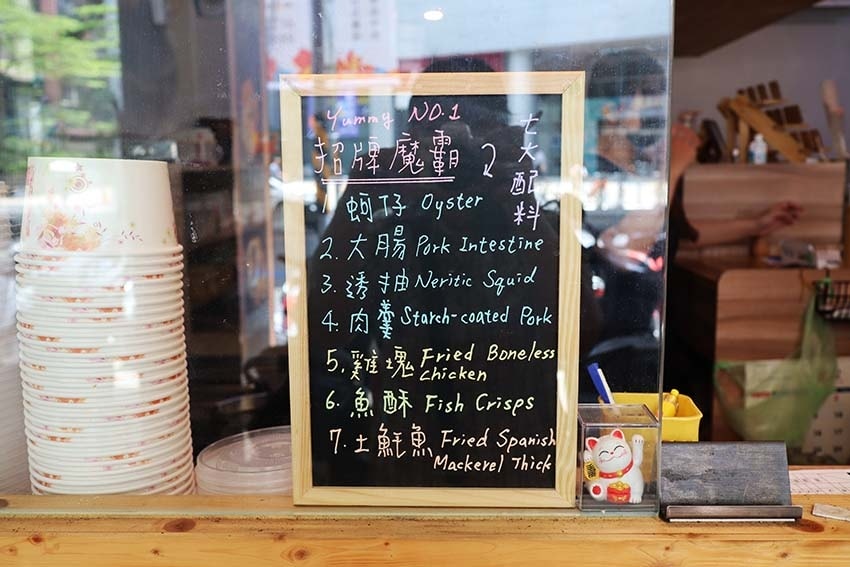 Yummy NO.1
招牌魔霸
七大配料
1. 蚵仔 Oyster
2. 大腸 Pork Intestine
3. 透抽 Neritic Squid
4. 肉羹 Starch-coated Pork
5. 雞塊 Fried Boneless
Chicken
6. 魚酥 Fish Crisps
7. 土魠魚 Fried Spanish
Mackerel Thick